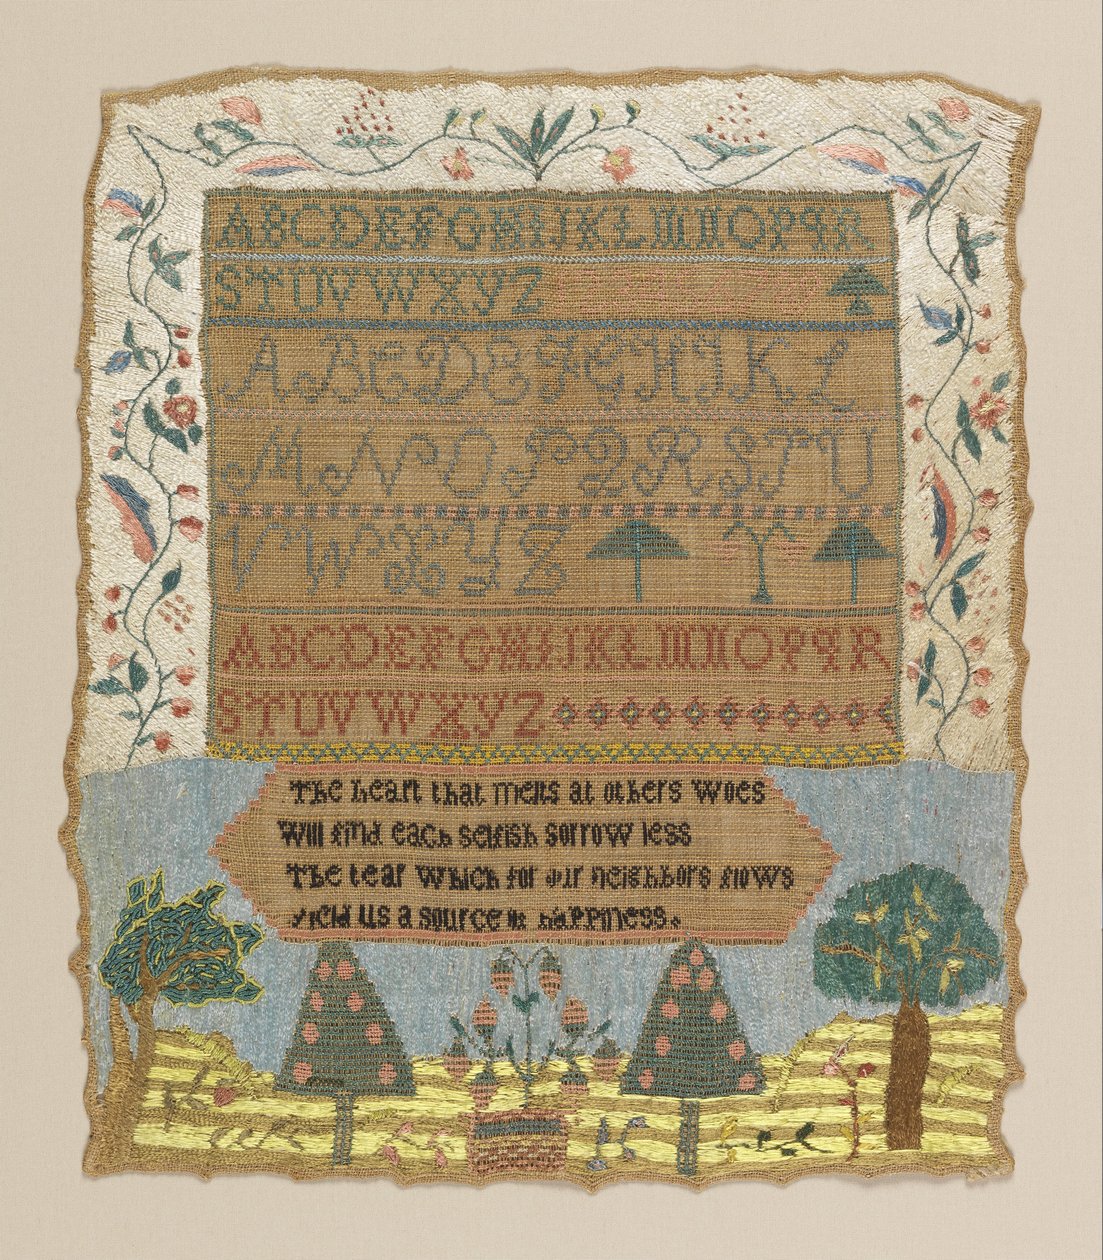 ABCDEFGHIJKLMNOPQR
STUVWXYZ
ABCDEFGHIJKL
MNOPQRSTU
VWXYZ
ABCDEFGHIJKLMNOPQR
STUVWXYZ
The heart that melts at others woes
Will find each selfish sorrow less
The tear which for our neighbors flows
Yield us a source of happiness.